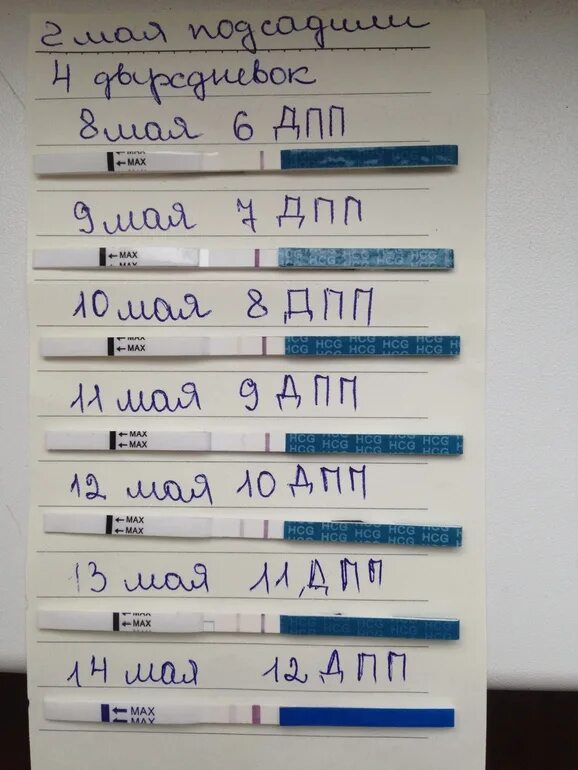 2 мая подсадили
4 двухдневок
8 мая 6 ДПП
← MAX
← MAX
9 мая 7 ДПП
← MAX
← MAX
HCG HCG HCG HCG
10 мая 8 ДПП
← MAX
← MAX
HCG HCG HCG HCG HCG
HCG HCG HCG HCG
11 мая 9 ДПП
← MAX
← MAX
HCG HCG HCG HCG
HCG HCG HCG HCG HCG
12 мая 10 ДПП
← MAX
← MAX
HCG HCG HCG HCG
HCG HCG HCG HCG HCG
13 мая 11 ДПП
← MAX
← MAX
HCG HCG HCG HCG
14 мая 12 ДПП
← MAX
← MAX